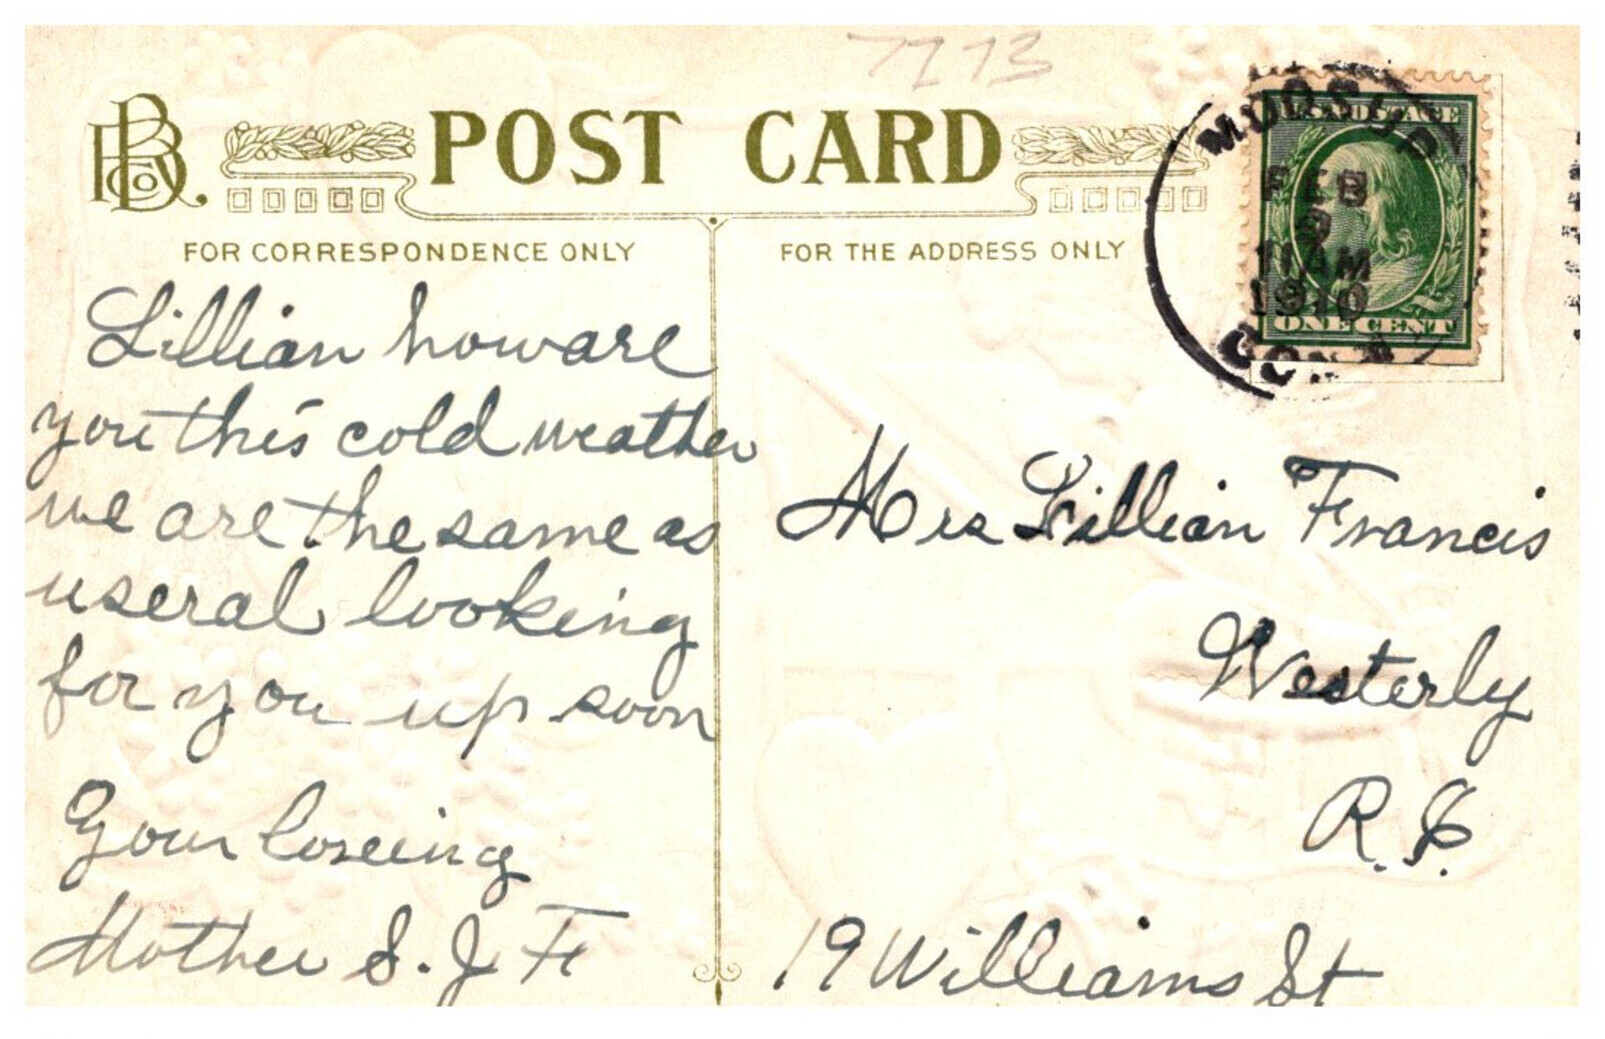 7773
POST CARD
FOR CORRESPONDENCE ONLY
FOR THE ADDRESS ONLY
U.S. POSTAGE
ONE CENT
MOOSUP
FEB
9
11 AM
1910
CONN.
Lillian how are
you this cold weather
we are the same as
useral looking
for you up soon
Your loveing
Mother S. J. F
Mrs Lillian Francis
Westerly
R. I.
19 Williams St